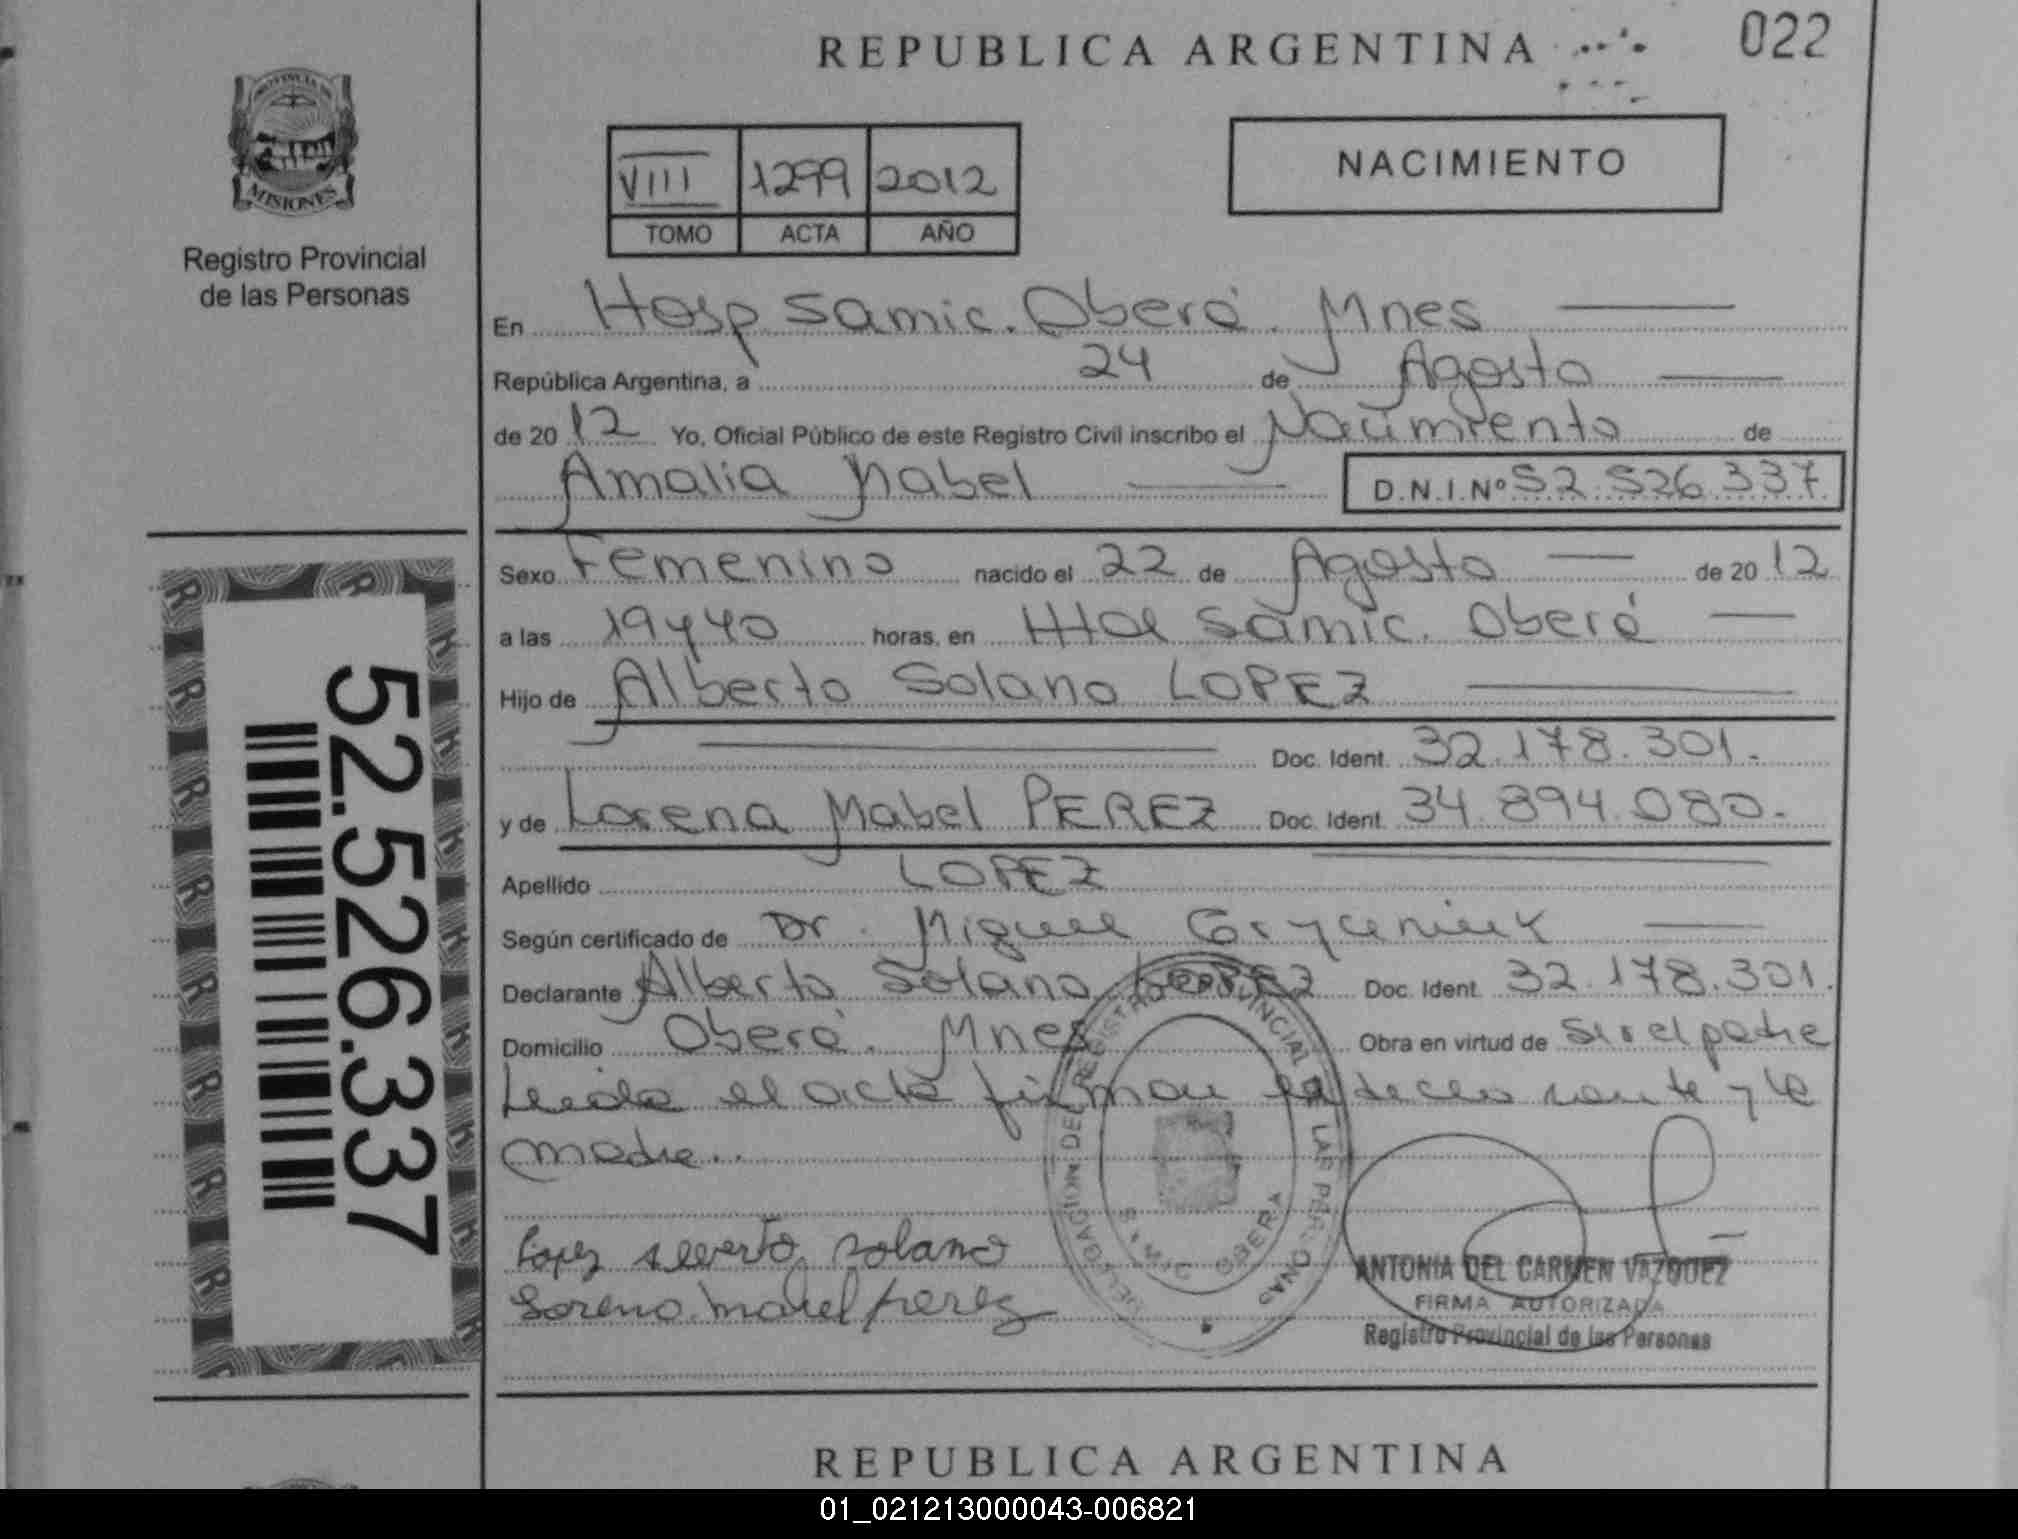 REPUBLICA ARGENTINA
022
PROVINCIA DE
MISIONES
Registro Provincial
de las Personas
VIII 1299 2012
TOMO ACTA AÑO
NACIMIENTO
En Hosp Samic. Oberá. Mnes
República Argentina, a 24 de Agosto
de 2012 Yo, Oficial Público de este Registro Civil inscribo el Nacimiento de
Amalia Mabel D.N.I.Nº 52.526.337
Sexo Femenino nacido el 22 de Agosto de 2012
a las 19y40 horas, en Htal Samic. Oberá
Hijo de Alberto Solano LOPEZ
Doc. Ident. 32.178.301.
y de Lorena Mabel PEREZ Doc. Ident. 34.894.080.
Apellido LOPEZ
Según certificado de Dr. Miguel
Declarante Alberto Solano LOPEZ Doc. Ident. 32.178.301.
Domicilio Oberá. Mnes Obra en virtud de ser el padre
Leida el acta firman el declarante y la
madre..
Lopez Alberto solano
Lorena mabel perez
DELEGACION DEL REGISTRO PROVINCIAL DE LAS PERSONAS
SAMIC OBERA
ANTONIA DEL CARMEN VAZQUEZ
FIRMA AUTORIZADA
Registro Provincial de las Personas
52.526.337
REPUBLICA ARGENTINA
01_021213000043-006821